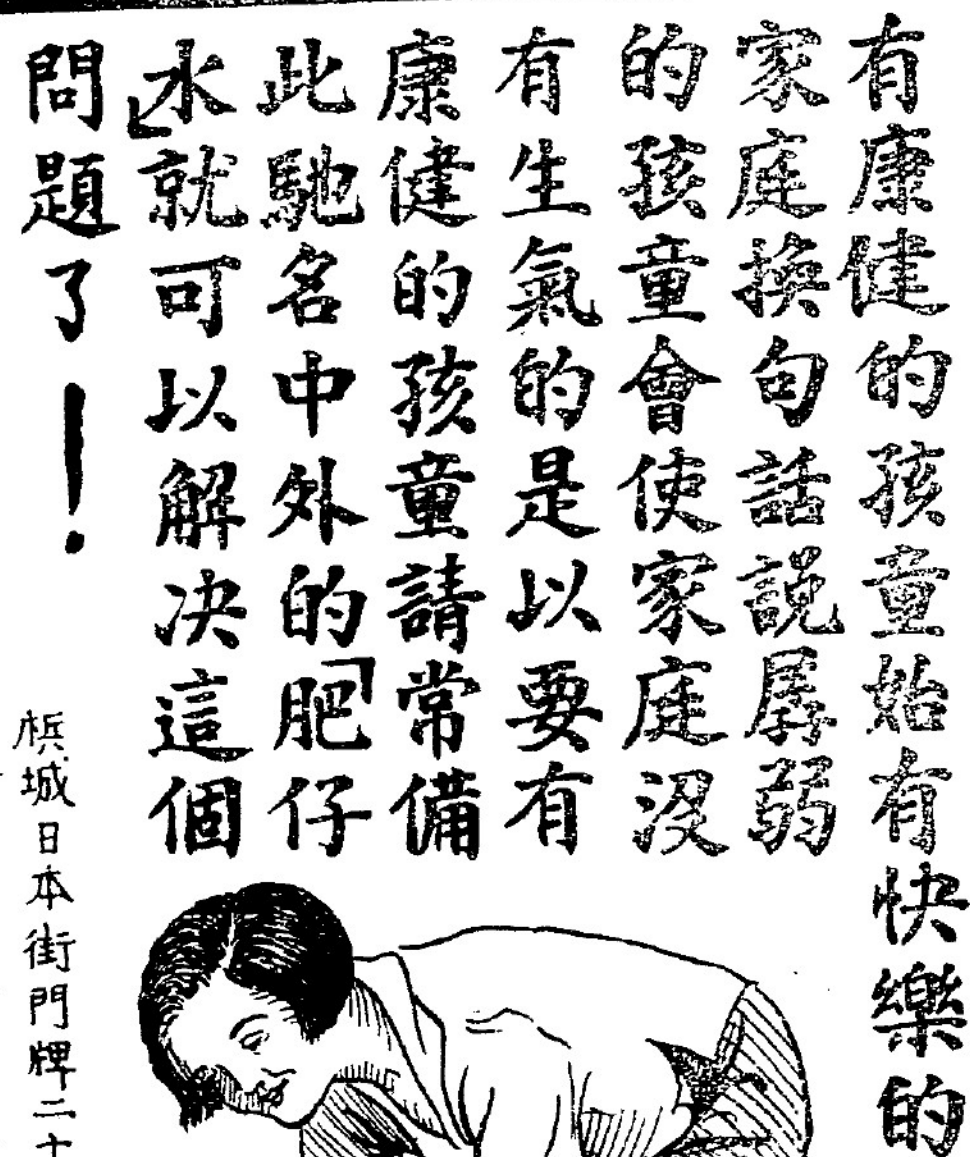 有康健的孩童始有快樂的
家庭換句話說孱弱
的孩童會使家庭沒
有生氣的是以要有
康健的孩童請常備
此馳名中外的「肥仔
水」就可以解决這個
問題了！
梹城日本街門牌二十